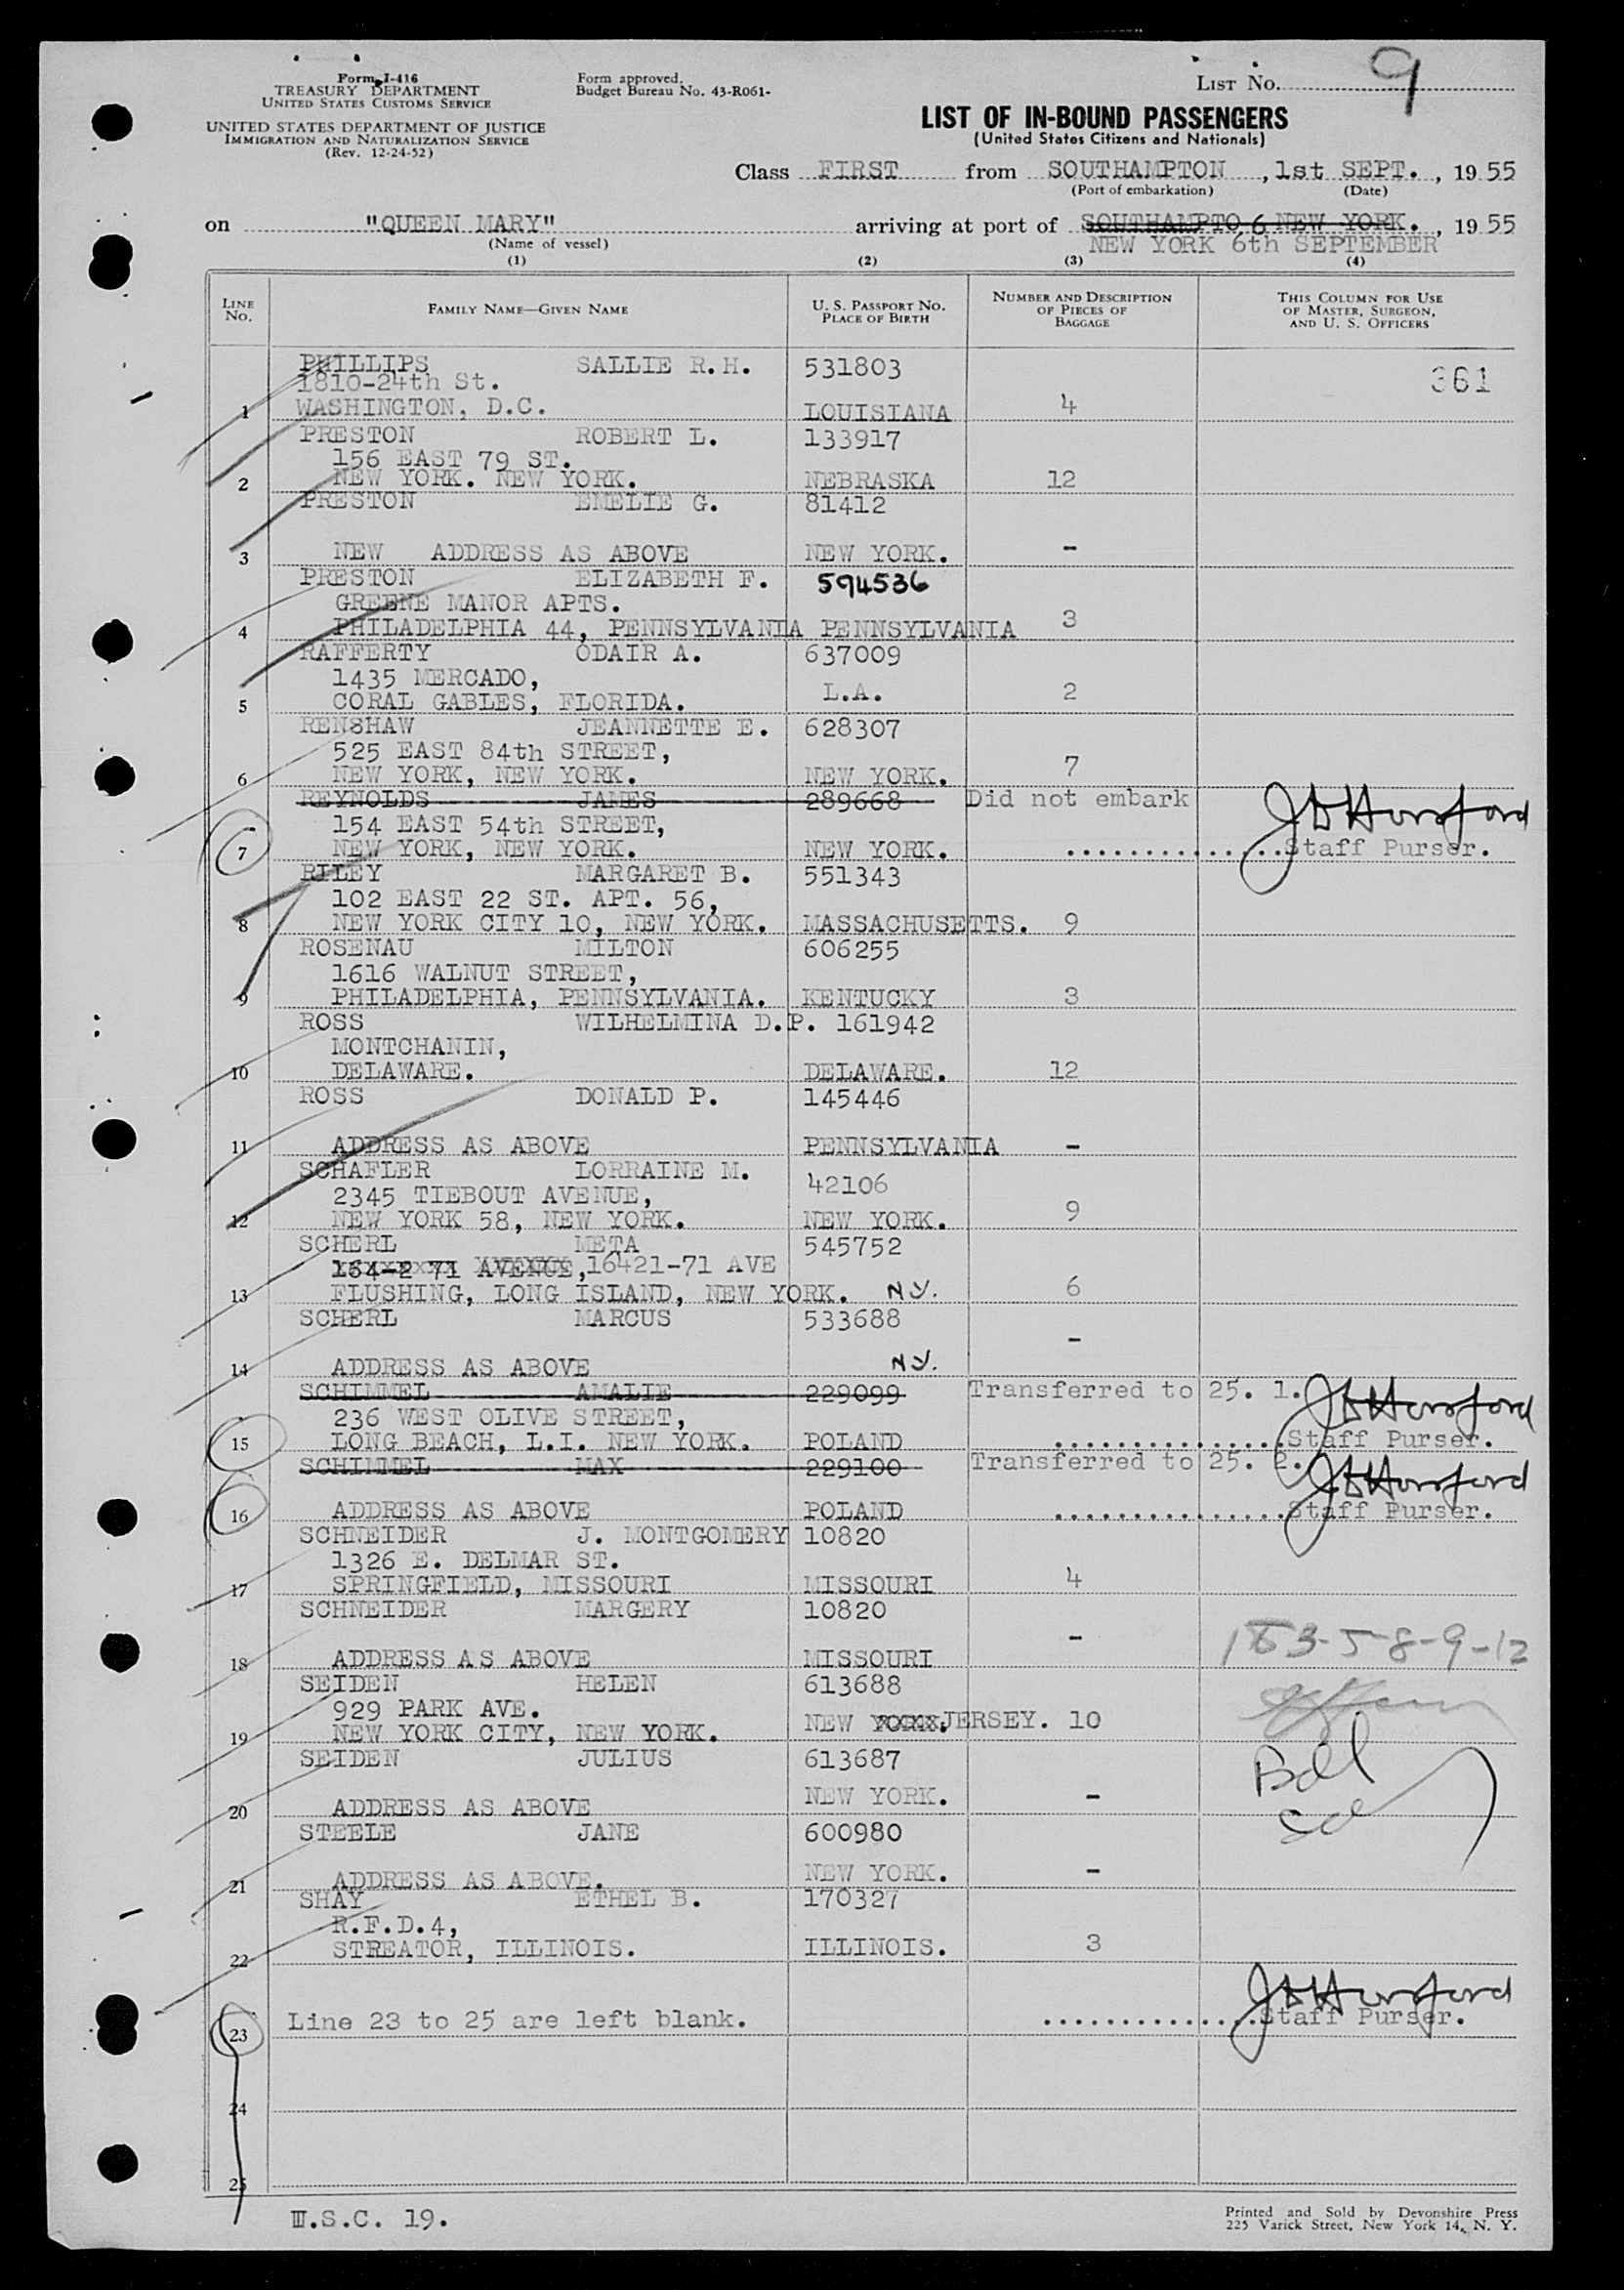 Form I-416
TREASURY DEPARTMENT
UNITED STATES CUSTOMS SERVICE
UNITED STATES DEPARTMENT OF JUSTICE
IMMIGRATION AND NATURALIZATION SERVICE
(Rev. 12-24-52)
Form approved.
Budget Bureau No. 43-R061-
LIST NO. 9
LIST OF IN-BOUND PASSENGERS
(United States Citizens and Nationals)
Class FIRST from SOUTHAMPTON, 1st SEPT., 19 55
(Port of embarkation) (Date)
on "QUEEN MARY" arriving at port of SOUTHAMPTO 6 NEW YORK., 19 55
(Name of vessel) NEW YORK 6th SEPTEMBER
(1) (2) (3) (4)
LINE NO. FAMILY NAME—GIVEN NAME U. S. PASSPORT NO. PLACE OF BIRTH NUMBER AND DESCRIPTION OF PIECES OF BAGGAGE THIS COLUMN FOR USE OF MASTER, SURGEON, AND U. S. OFFICERS
PHILLIPS SALLIE R.H. 531803
1810-24th St. 361
1 WASHINGTON, D.C. LOUISIANA 4
PRESTON ROBERT L. 133917
156 EAST 79 ST.
2 NEW YORK. NEW YORK. NEBRASKA 12
PRESTON EMELIE G. 81412
3 NEW ADDRESS AS ABOVE NEW YORK. -
PRESTON ELIZABETH F. 594536
GREENE MANOR APTS.
4 PHILADELPHIA 44, PENNSYLVANIA PENNSYLVANIA 3
RAFFERTY ODAIR A. 637009
1435 MERCADO,
5 CORAL GABLES, FLORIDA. L.A. 2
RENSHAW JEANNETTE E. 628307
525 EAST 84th STREET,
6 NEW YORK, NEW YORK. NEW YORK. 7
REYNOLDS JAMES 289668 Did not embark
154 EAST 54th STREET,
7 NEW YORK, NEW YORK. NEW YORK. ...............Staff Purser.
RILEY MARGARET B. 551343
102 EAST 22 ST. APT. 56,
8 NEW YORK CITY 10, NEW YORK. MASSACHUSETTS. 9
ROSENAU MILTON 606255
1616 WALNUT STREET,
9 PHILADELPHIA, PENNSYLVANIA. KENTUCKY 3
ROSS WILHELMINA D.P. 161942
MONTCHANIN,
10 DELAWARE. DELAWARE. 12
ROSS DONALD P. 145446
11 ADDRESS AS ABOVE PENNSYLVANIA -
SCHAFLER LORRAINE M. 42106
2345 TIEBOUT AVENUE,
12 NEW YORK 58, NEW YORK. NEW YORK. 9
SCHERL META 545752
164-2 71 AVENUE, 16421-71 AVE
13 FLUSHING, LONG ISLAND, NEW YORK. N.Y. 6
SCHERL MARCUS 533688
14 ADDRESS AS ABOVE N.Y. -
SCHIMMEL AMALIE 229099 Transferred to 25. 1.
236 WEST OLIVE STREET,
15 LONG BEACH, L.I. NEW YORK. POLAND ...............Staff Purser.
SCHIMMEL MAX 229100 Transferred to 25. 2.
16 ADDRESS AS ABOVE POLAND ...............Staff Purser.
SCHNEIDER J. MONTGOMERY 10820
1326 E. DELMAR ST.
17 SPRINGFIELD, MISSOURI MISSOURI 4
SCHNEIDER MARGERY 10820
18 ADDRESS AS ABOVE MISSOURI -
SEIDEN HELEN 613688
929 PARK AVE.
19 NEW YORK CITY, NEW YORK. NEW JERSEY. 10
SEIDEN JULIUS 613687
20 ADDRESS AS ABOVE NEW YORK. -
STEELE JANE 600980
21 ADDRESS AS ABOVE. NEW YORK. -
SHAY ETHEL B. 170327
R.F.D.4,
22 STREATOR, ILLINOIS. ILLINOIS. 3
23 Line 23 to 25 are left blank. ...............Staff Purser.
24
25
III.S.C. 19.
Printed and Sold by Devonshire Press
225 Varick Street, New York 14, N. Y.